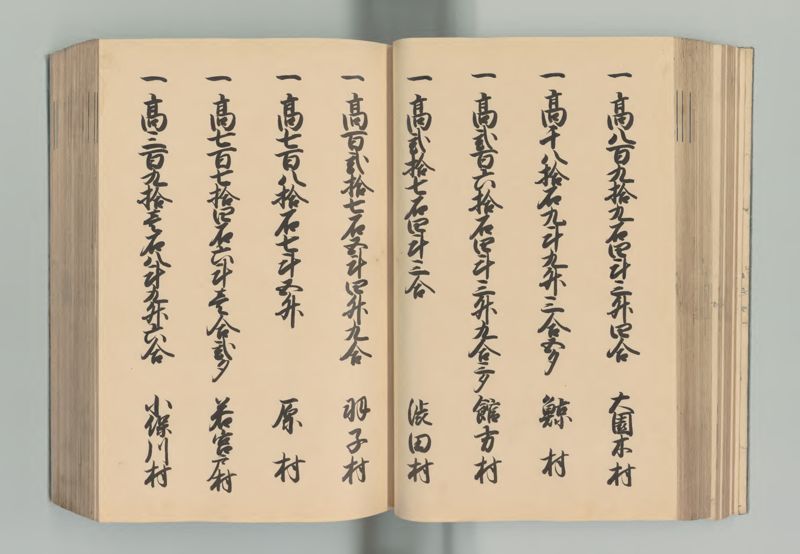 一 高八百九拾九石四斗三升四合 大園木村
一 高千八拾石九斗九升三合五夕 鯨村
一 高弐百六拾石四斗三升九合三夕 館方村
一 高弐拾七石四斗三合 渋田村
一 高百弐拾七石五斗四升九合 羽子村
一 高七百八拾石七斗五升 原村
一 高七百七拾四石六斗壱合弐夕 若宮戸村
一 高三百九拾壱石八斗九升六合 小保川村